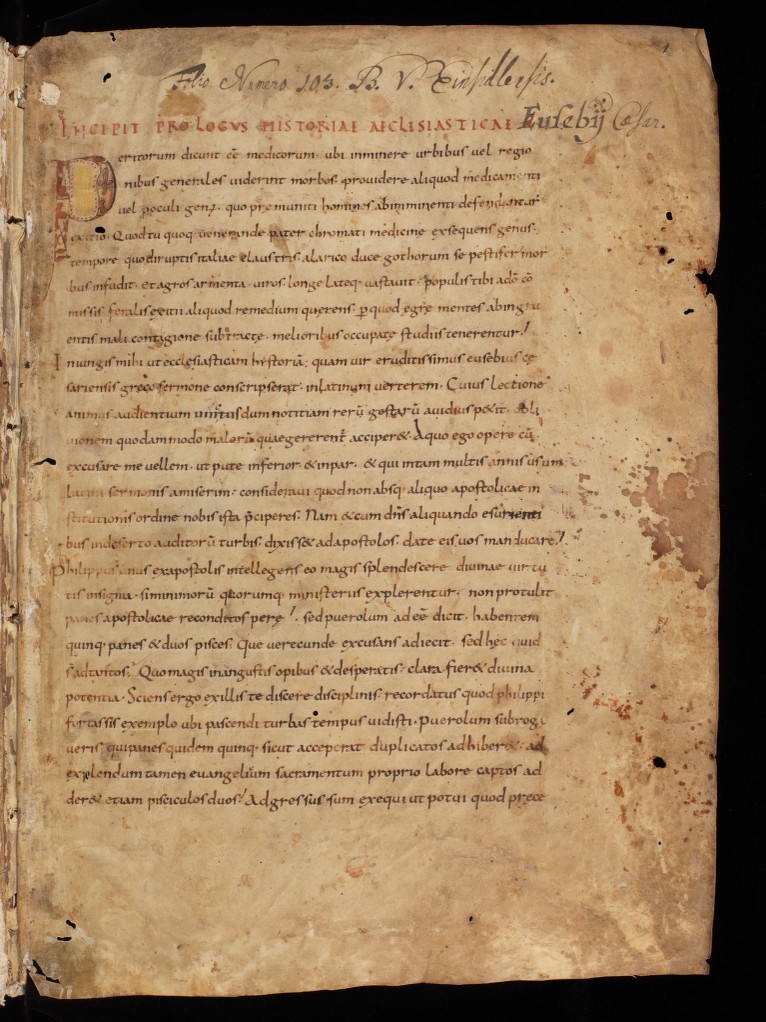 Folio Numero 103. B. V. Einsidlensis.
INCIPIT PROLOGVS HISTORIAE AECLESIASTICAE Eusebij Cæsar.
Peritorum dicunt eē medicorum· ubi inminere urbibus vel regio
nibus generales viderint morbos· providere aliquod medicamenti
vel poculi genus· quo premuniti homines ab imminenti defendantur
exitio· Quod tu quoq; venerande pater chromati medicine exsequens genus·
tempore quo diruptis italiae claustris alarico duce gothorum se pestifer mor
bus infudit· et agros armenta· viros longe lateq; vastavit· populis tibi a dō cō
missis feralis exitii aliquod remedium querens· p quod egre mentes ab ingru
entis mali contagione subtracte· melioribus occupate studiis tenerentur!
Iniungis mihi ut ecclesiasticam hystoriā; quam vir eruditissimus eusebius ce
sariensis greco sermone conscripserat· in latinum verterem· Cuius lectione
animus audientium vinctus dum notitiam rerū gestarū avidius petit· obli
vionem quodammodo malorū quae gererent acciper&· A quo ego opere cū
excusare me vellem· ut pute inferior & inpar· & qui in tam multis annis usum
latini sermonis amiserim· consideravi quod non absq; aliquo apostolicae in
stitutionis ordine nobis ista p̄ciperes· Nam & cum dn̄s aliquando esurienti
bus in deserto auditorū turbis· dixiss& ad apostolos· date eis vos manducare!
Philippus unus ex apostolis intellegens eo magis splendescere divinae virtu
tis insignia· si minimorū quorumq; ministeriis explerentur· non protulit
panes apostolicae reconditos pere! sed puerolum adeē dicit· habentem
quinq; panes & duos pisces· Que verecunde excusans adiecit· sed hec quid
s̄ ad tantos· Quo magis in angustis opibus & desperatis· clara fier& divina
potentia· Sciens ergo ex illis te discere disciplinis· recordatus quod philippi
fortassis exemplo ubi pascendi turbas tempus vidisti· Puerolum subrogi
veris· qui panes quidem quinq; sicut acceperat duplicatos adhiber&· ad
explendum tamen evangelium sacramentum proprio labore captos ad
der& etiam pisciculos duos! Adgressus sum exequi ut potui quod prece